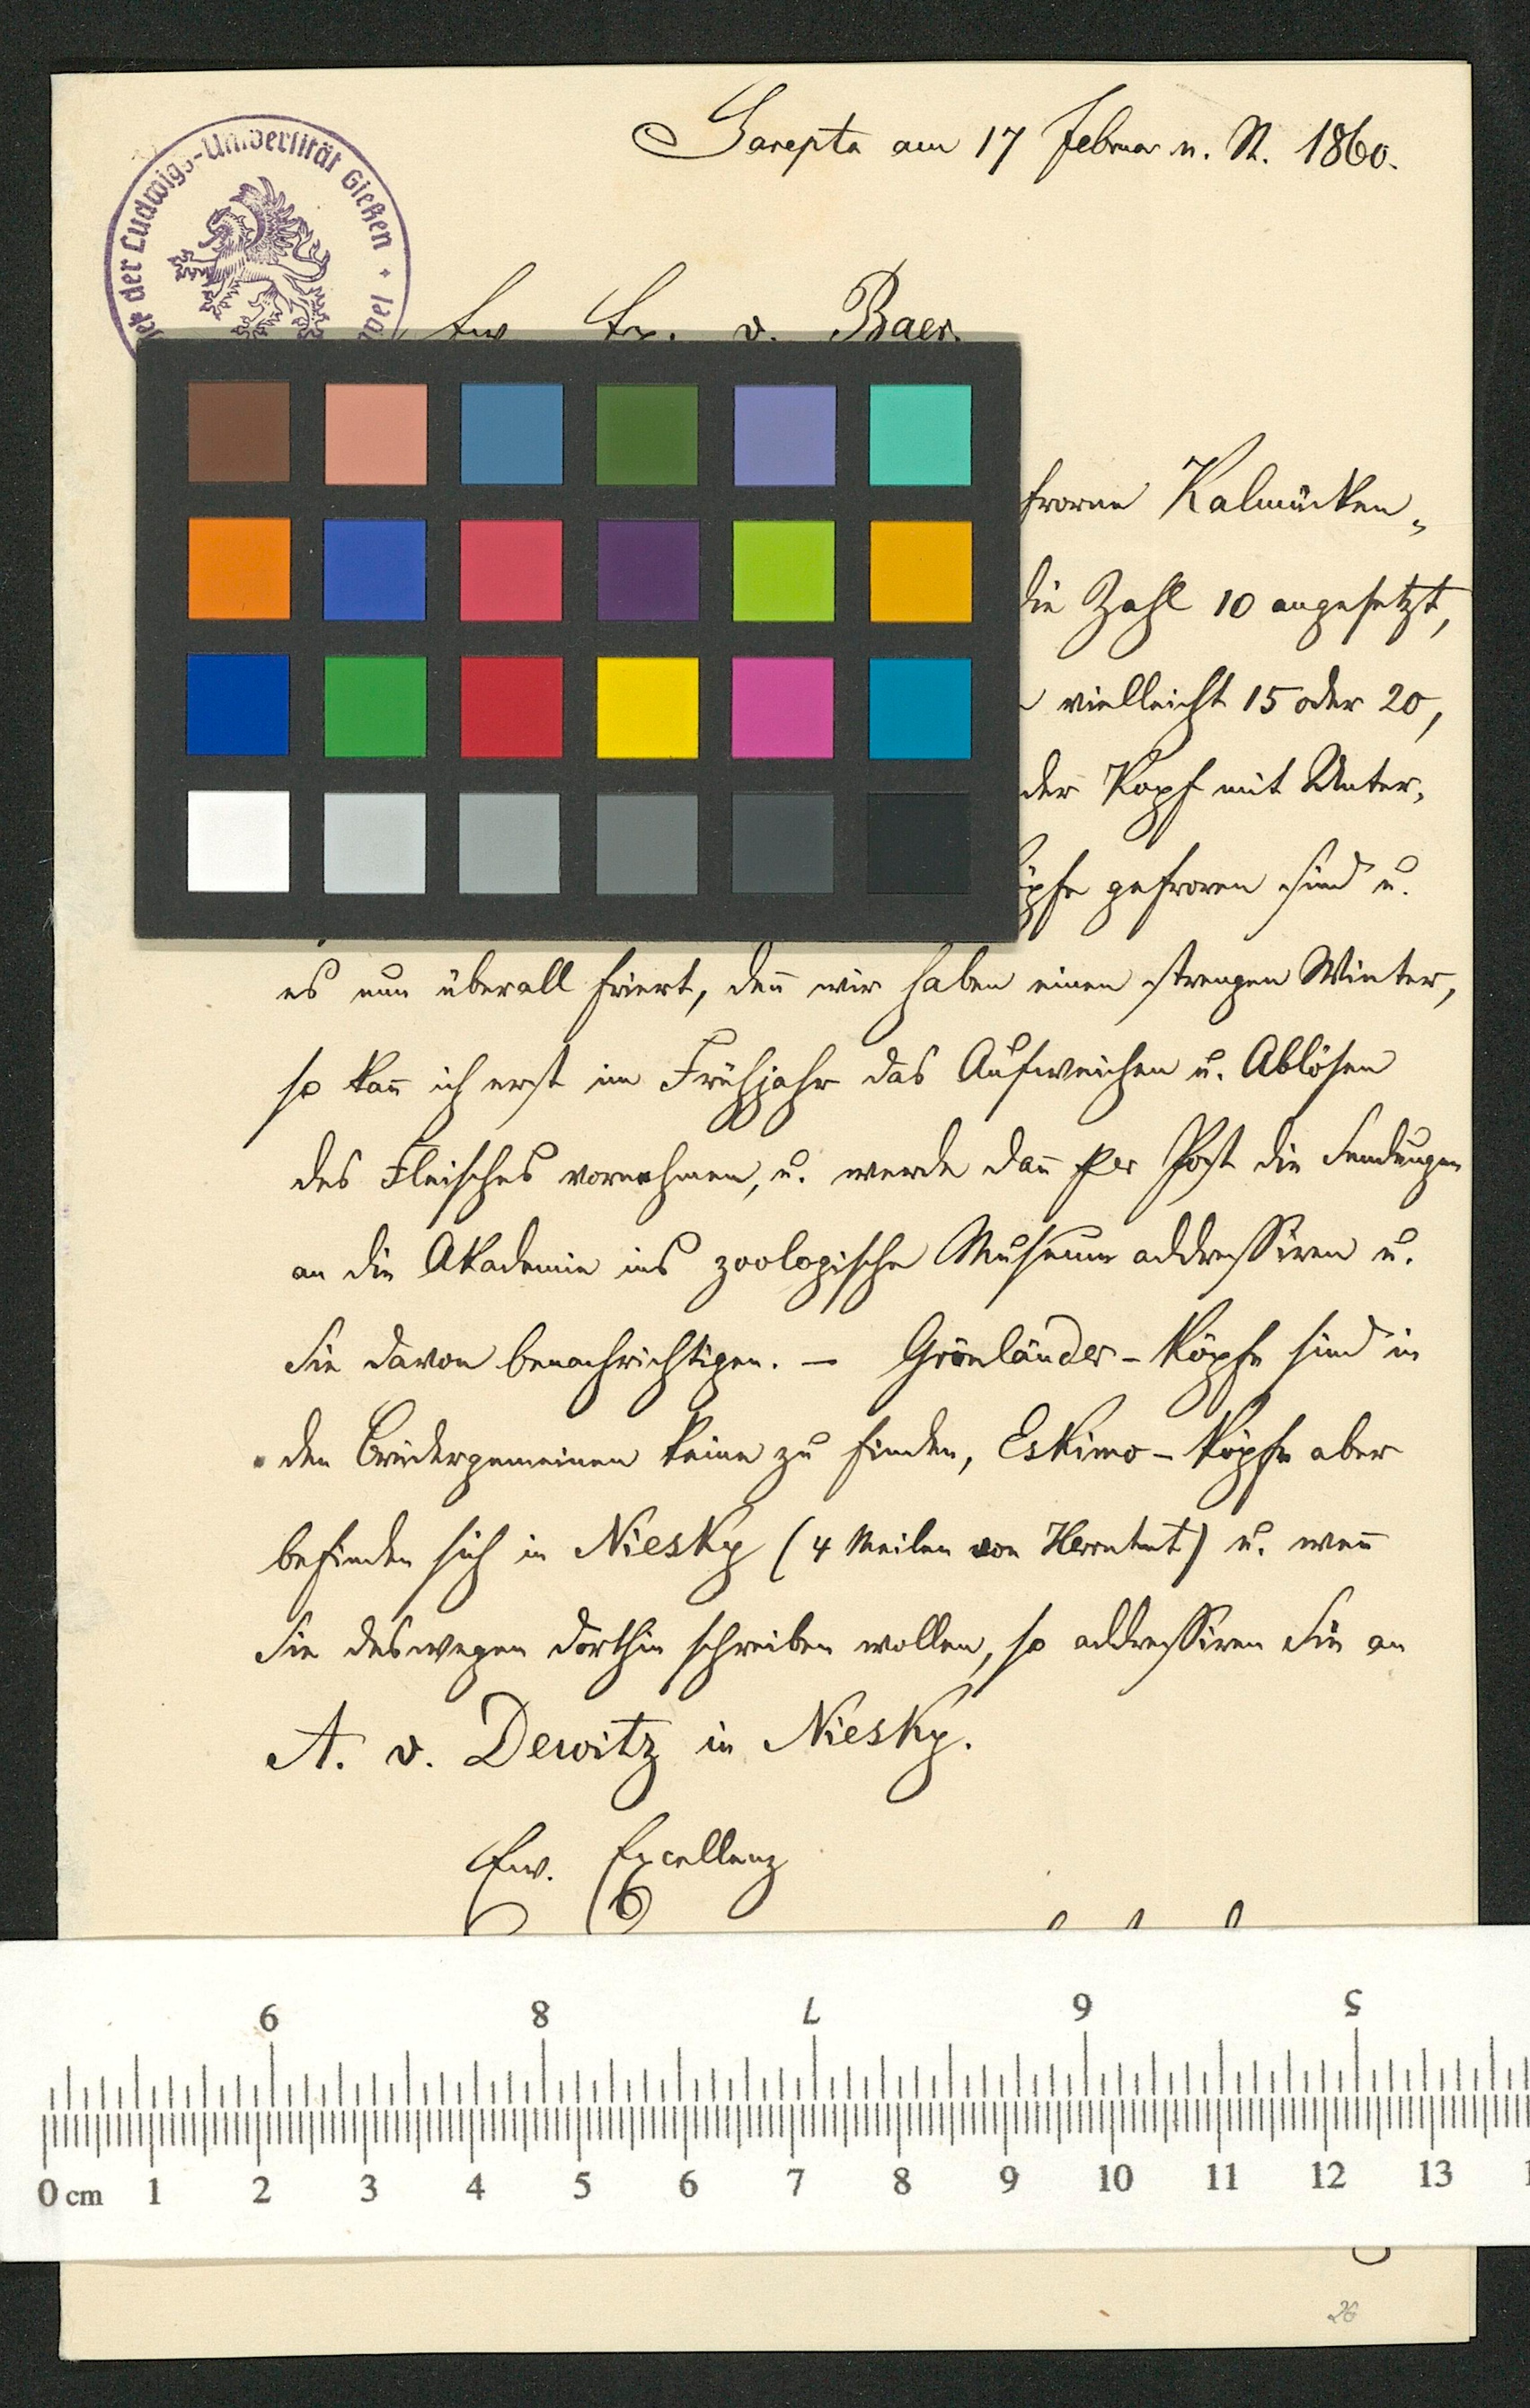 Sarepta am 17 Februar n. St. 1860.
der Ludwigs-Universität Gießen
Ew. Ex. v. Baer.
frorne Kalmücken„
die Zahl 10 angesetzt,
vielleicht 15 oder 20,
der Kopf mit Unter„
öpfe gefroren sind u.
es nun überall friert, deñ wir haben einen strengen Winter,
so kañ ich erst im Frühjahr das Aufweichen u. Ablösen
des Fleisches vornehmen, u. werde dañ per Post die Sendungen
an die Akademie ins zoologische Museum addressiren u.
Sie davon benachrichtigen. — Grönländer-Köpfe sind in
den Brüdergemeinen keine zu finden, Eskimo-Köpfe aber
befinden sich in Niesky (4 Meilen von Herrnhut) u. weñ
Sie deswegen dorthin schreiben wollen, so addressiren Sie an
A. v. Dewitz in Niesky.
Ew. Excellenz
9 8 7 6 5
0 cm 1 2 3 4 5 6 7 8 9 10 11 12 13
26